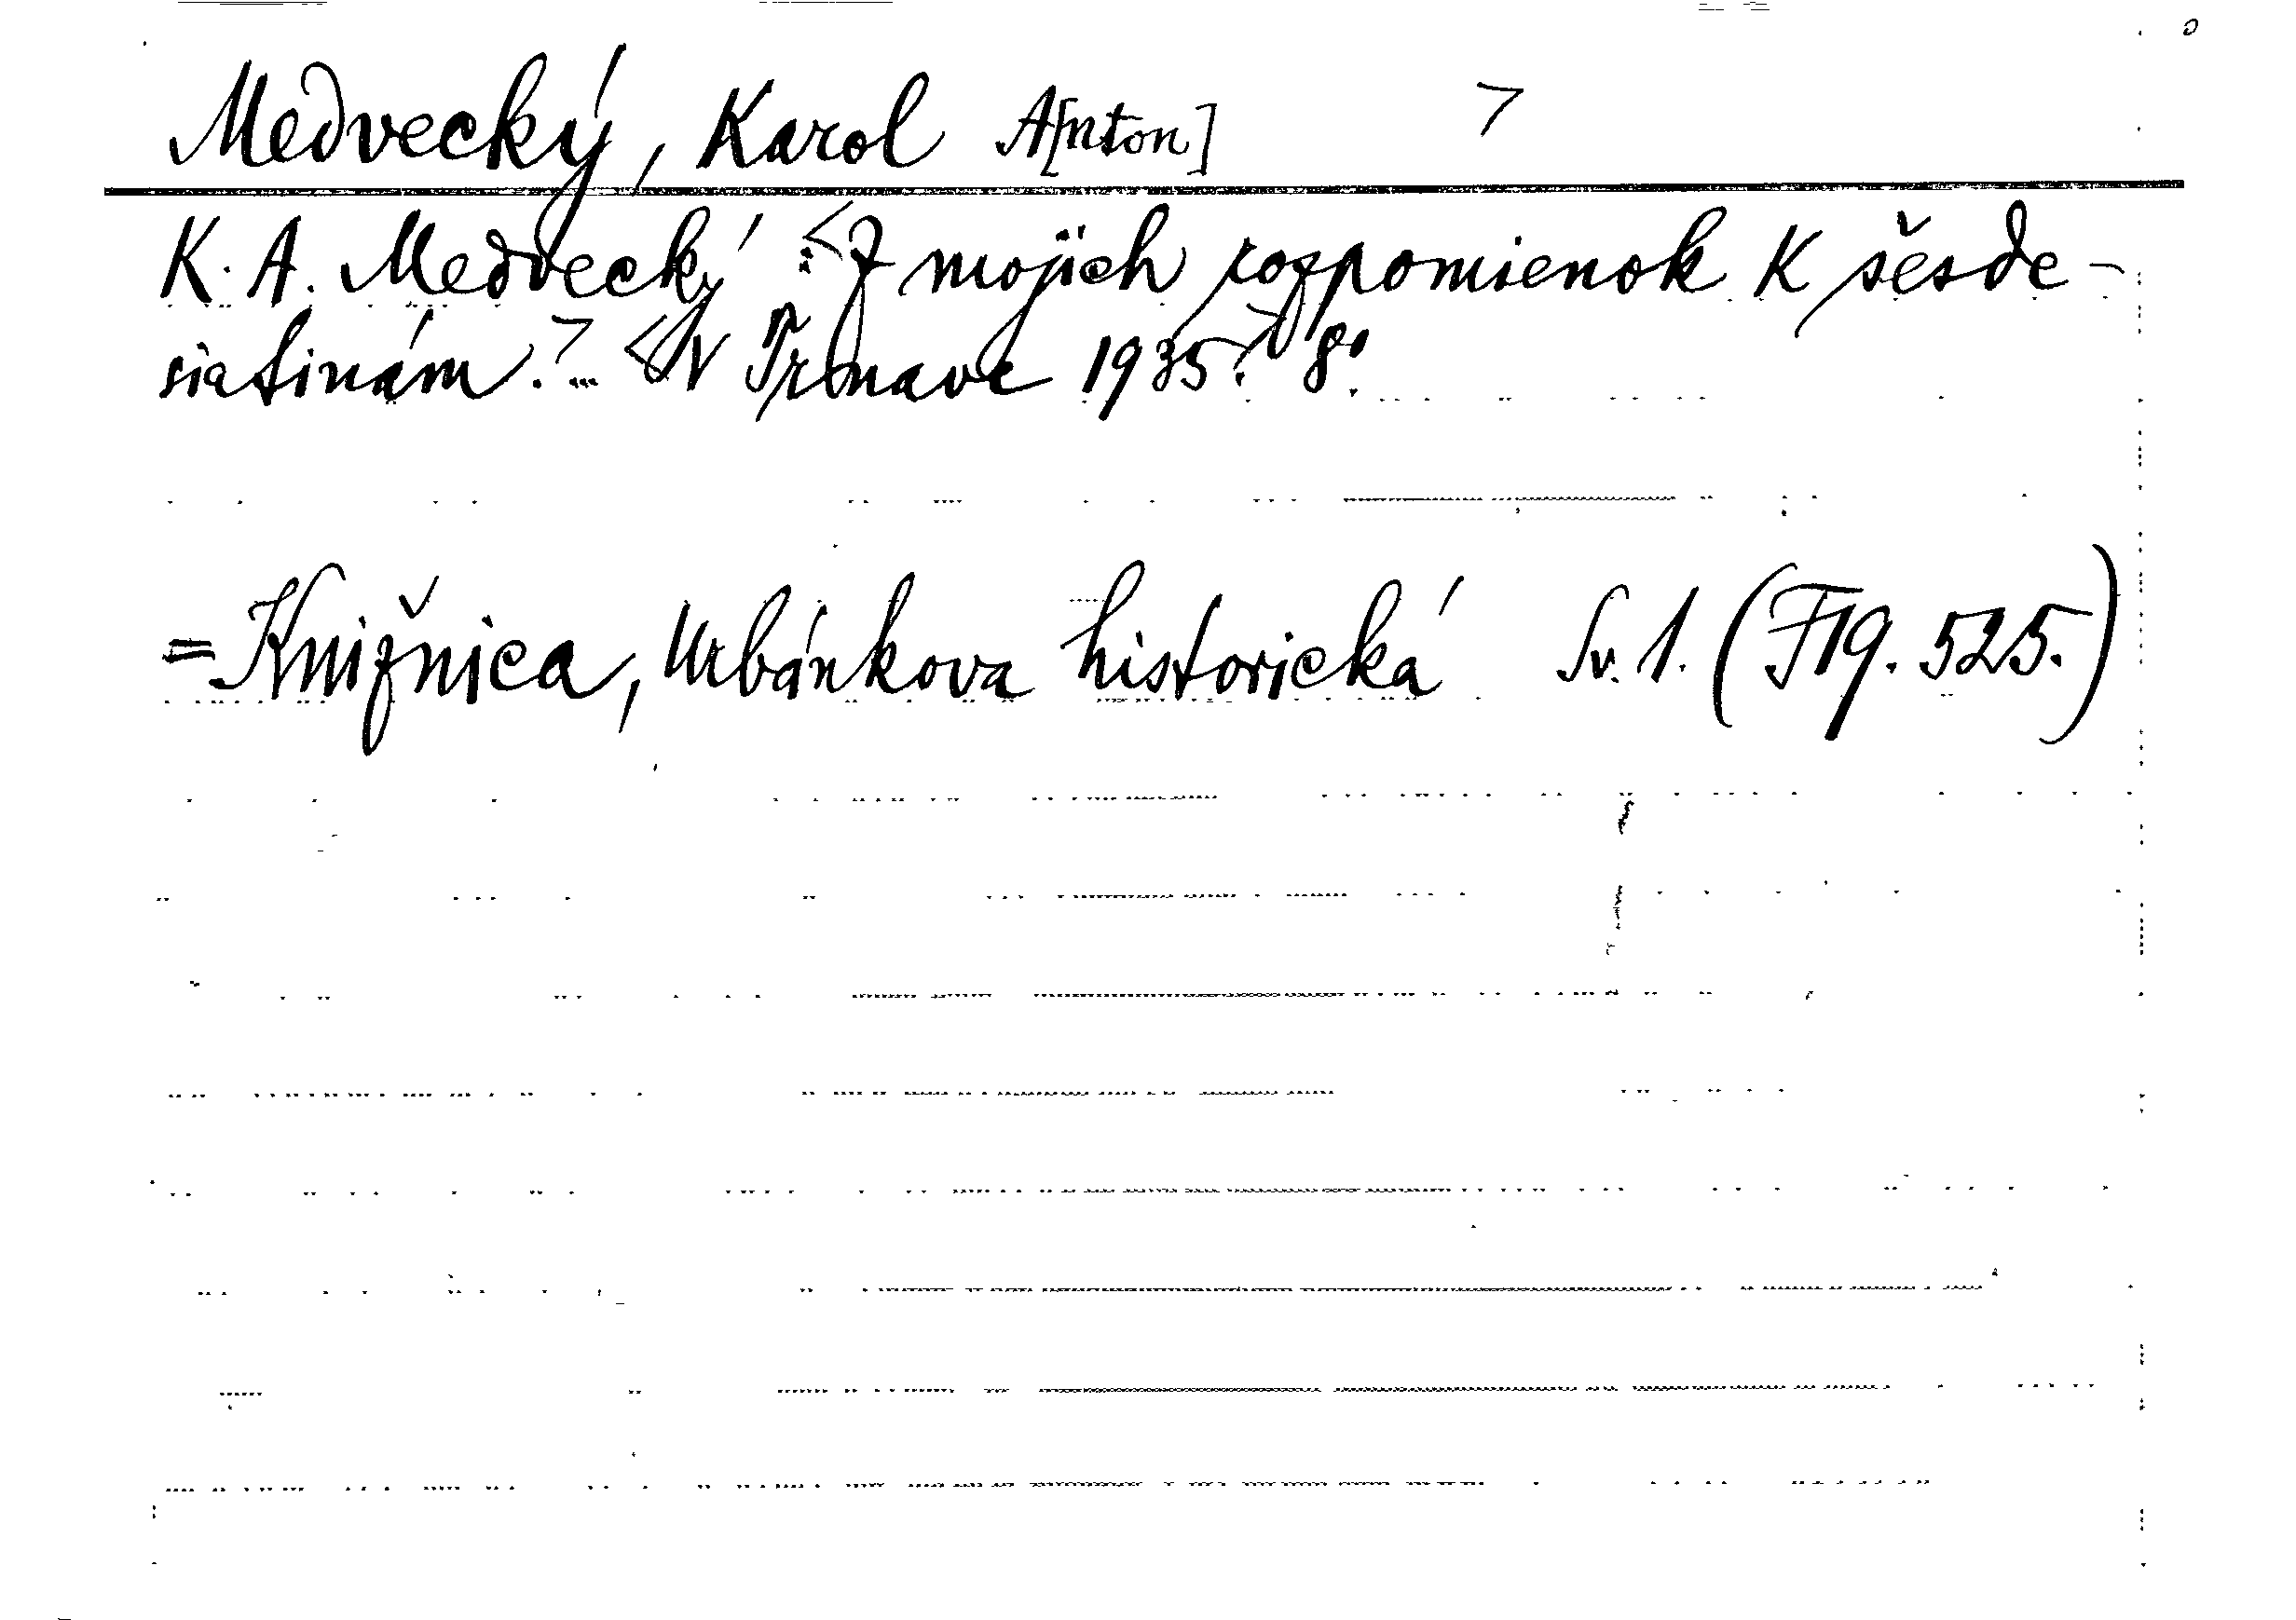 Medvecký, Karol A[nton] >
K. A. Medvecký : <Z mojich rozpomienok k šesde-
siatinám.> ... <V Trnave 1935.> 8°.
= Knižnica, Urbánkova historická Sv. 1. (F19. 525.)